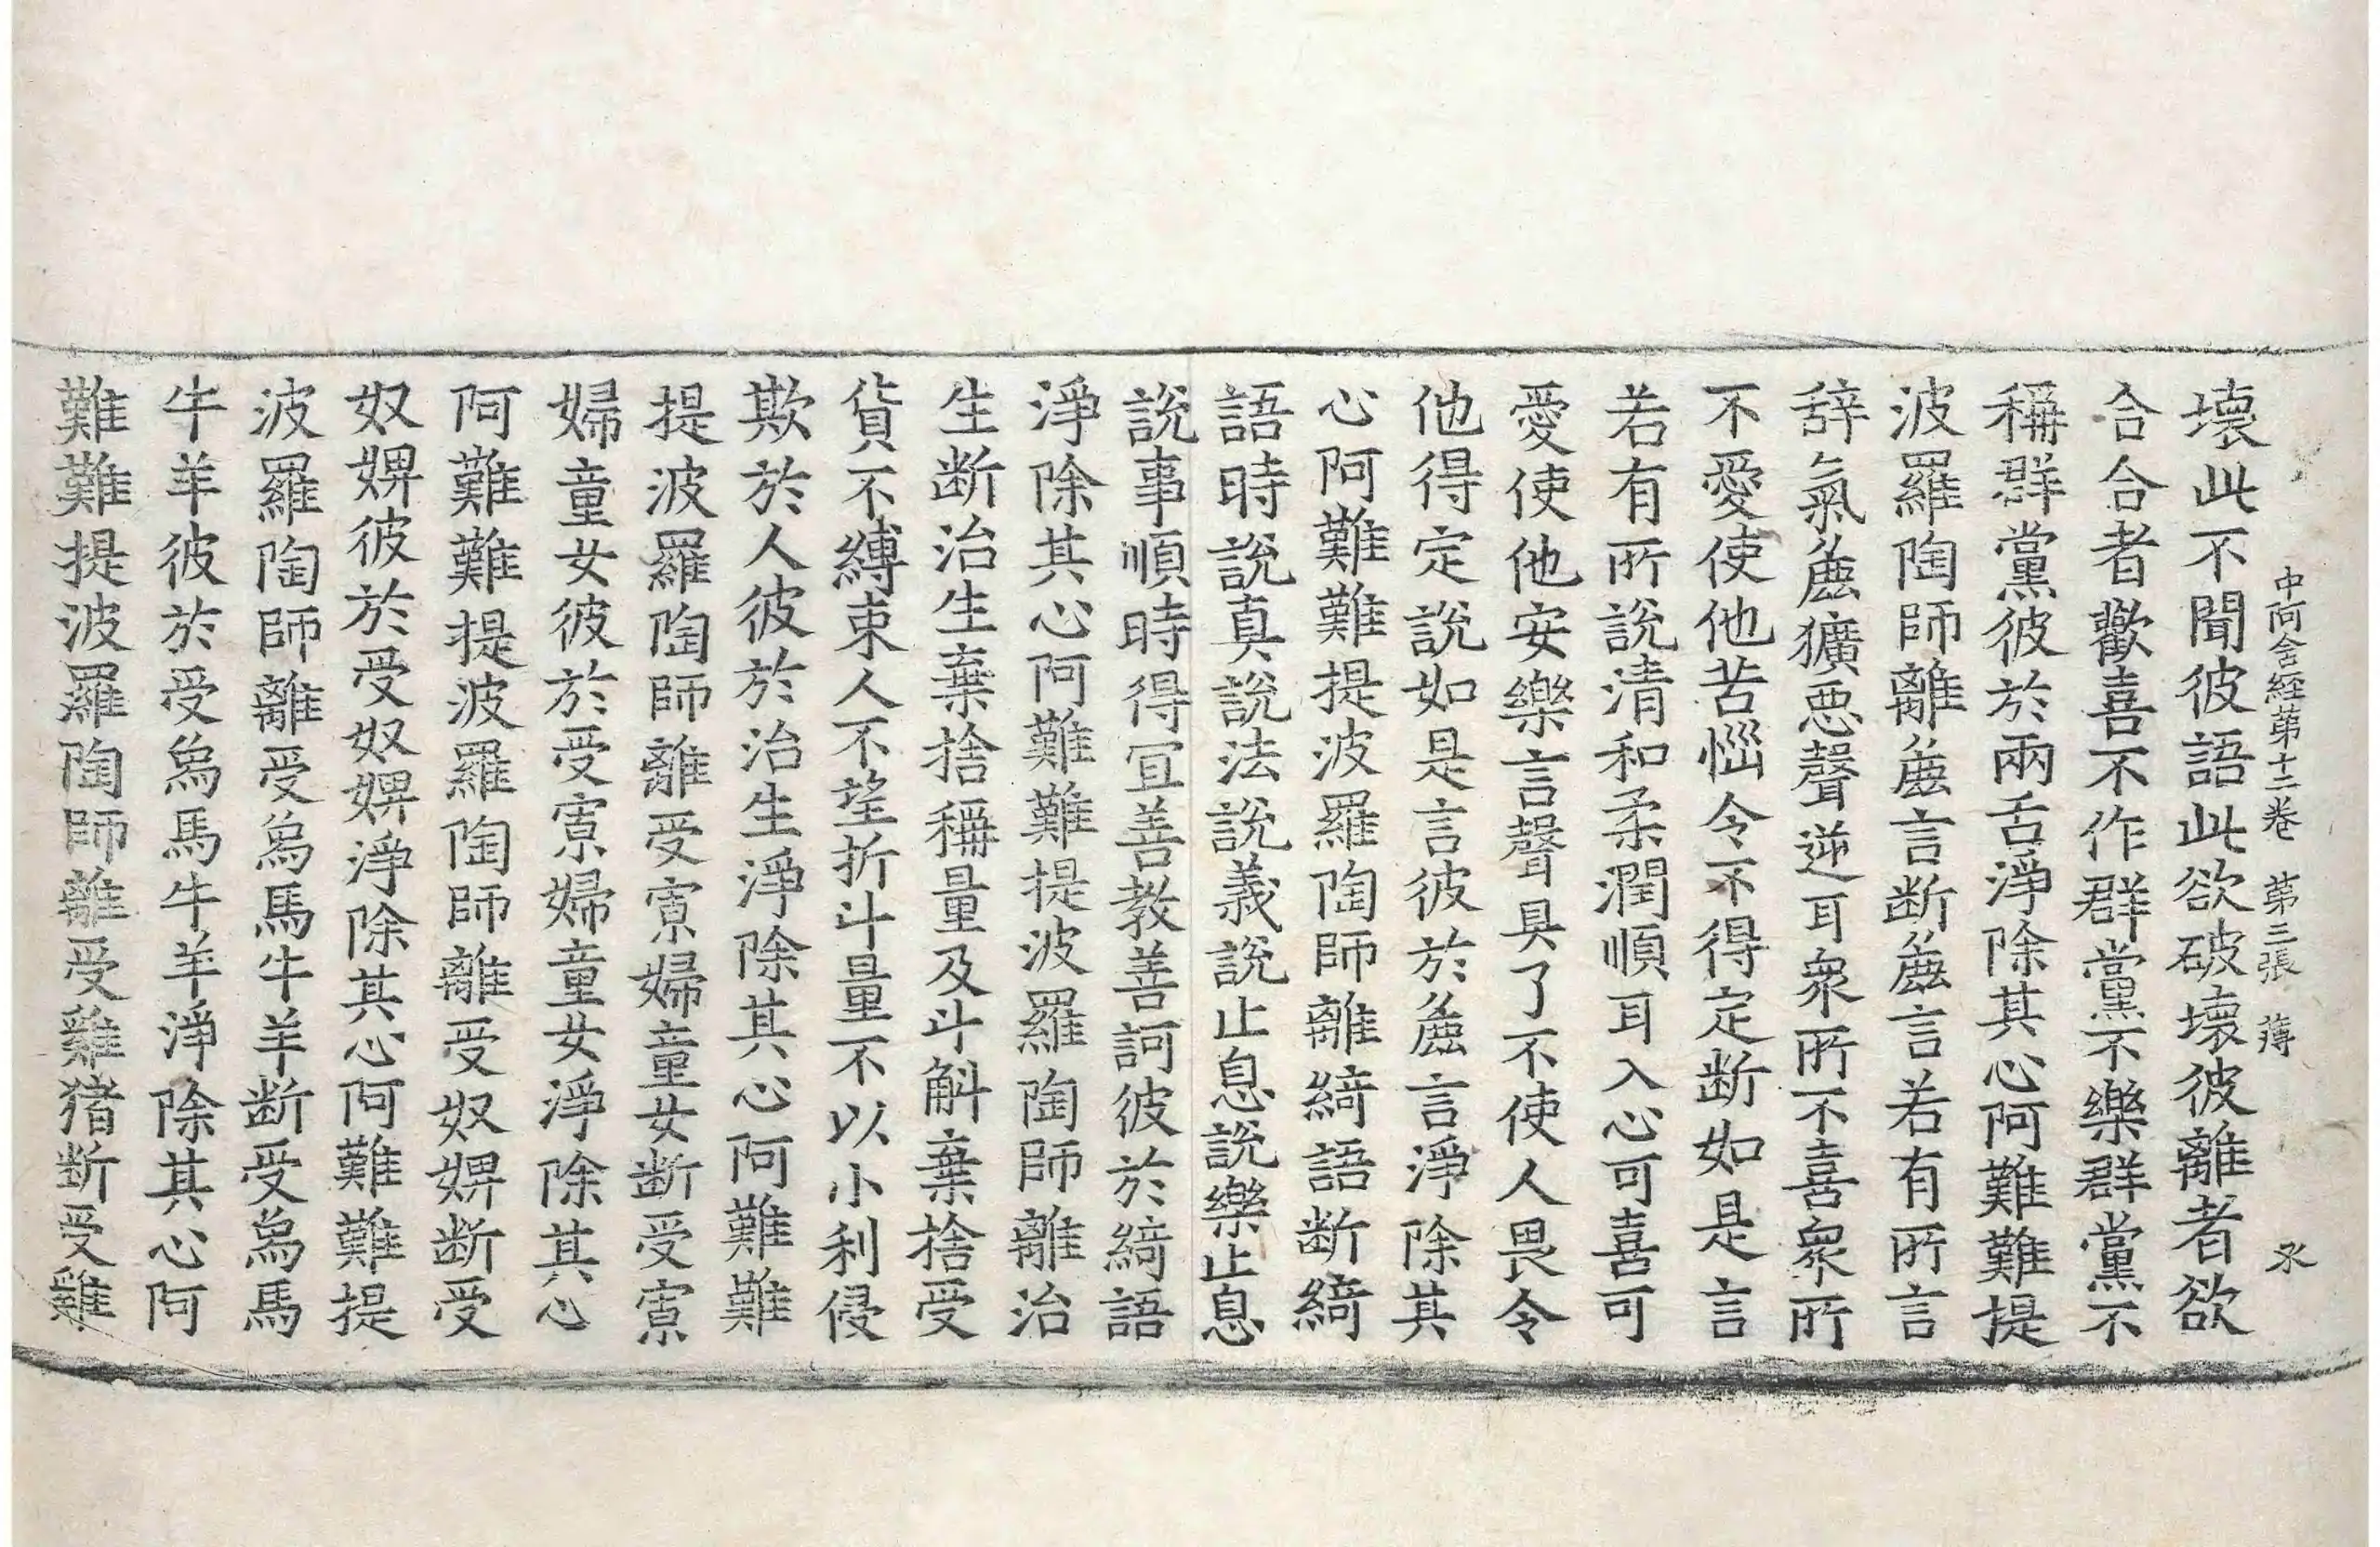 中阿含経第十二卷 第三張 薄 氺
壞此不聞彼語此欲破壞彼離者欲
合合者歡喜不作群黨不樂群黨不
稱群黨彼於兩舌淨除其心阿難難提
波羅陶師離麁言断麁言若有所言
辞氣麁獷悪聲逆耳衆所不喜衆所
不愛使他苦惱令不得定断如是言
若有所說清和柔潤順耳入心可喜可
愛使他安樂言聲具了不使人畏令
他得定說如是言彼於麁言淨除其
心阿難難提波羅陶師離綺語断綺
語時說真說法說義說止息說樂止息
說事順時得冝善教善訶彼於綺語
淨除其心阿難難提波羅陶師離治
生断治生棄捨稱量及斗斛棄捨受
貨不縛束人不望折斗量不以小利侵
欺於人彼於治生淨除其心阿難難
提波羅陶師離受寡婦童女断受寡
婦童女彼於受寡婦童女淨除其心
阿難難提波羅陶師離受奴婢断受
奴婢彼於受奴婢淨除其心阿難難提
波羅陶師離受爲馬牛羊断受爲馬
牛羊彼於受爲馬牛羊淨除其心阿
難難提波羅陶師離受雞猪断受雞